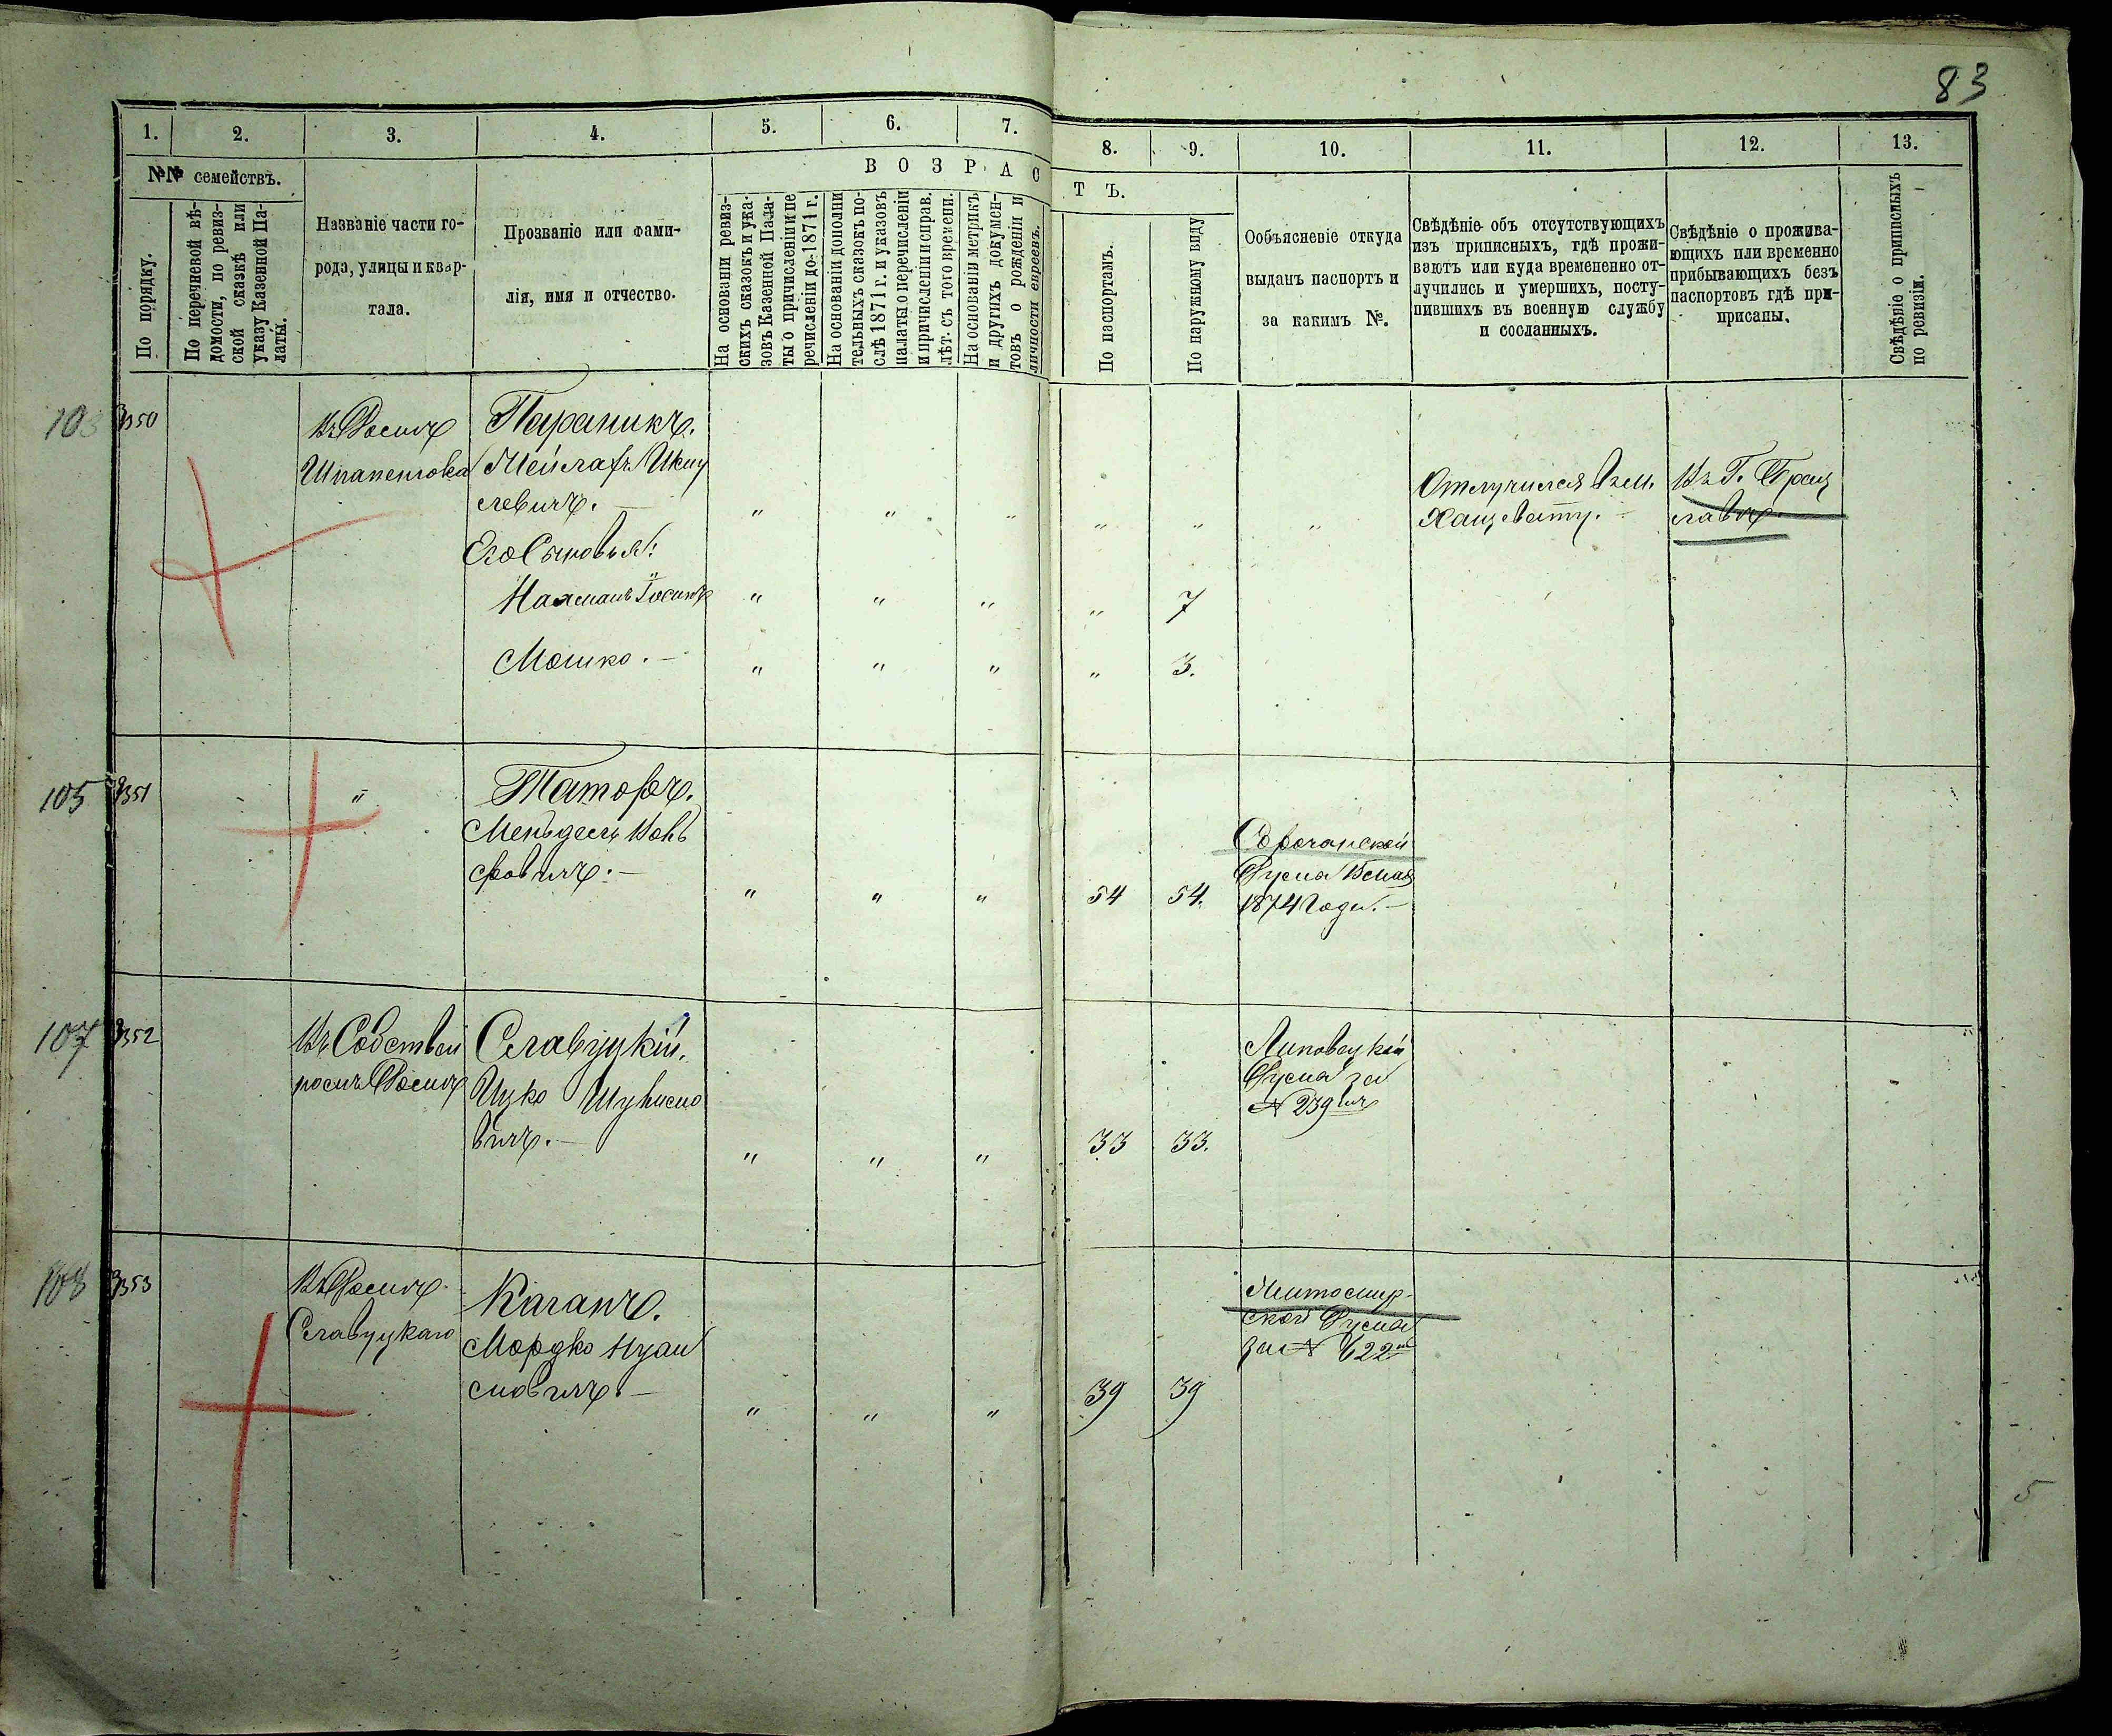 83
1. 2. 3. 4. 5. 6. 7. 8. 9. 10. 11. 12. 13.
№№ семействъ.
В О З Р А С Т Ъ.
По порядку.
По перечневой вѣ-
домости, по ревиз-
ской сказкѣ или
указу Казенной Па-
латы.
Названіе части го-
рода, улицы и квар-
тала.
Прозваніе или фами-
лія, имя и отчество.
На основаніи ревиз-
скихъ сказокъ и ука-
зовъ Казенной Пала-
ты о причисленіи и пе
речисленіи до-1871 г.
На основаніи дополни
тельныхъ сказокъ по-
слѣ 1871 г. и указовъ
палаты о перечисленіи
и причисленіи и справ.
лѣт. съ того времени.
На основаніи метрикъ
и другихъ докумен-
товъ о рожденіи и
личности евреевъ.
По паспортамъ.
По наружному виду
Ообъясненіе откуда
выданъ паспортъ и
за какимъ №.
Свѣдѣніе объ отсутствующихъ
изъ приписныхъ, гдѣ прожи-
ваютъ или куда временно от-
лучились и умершихъ, посту-
пившихъ въ военную службу
и сосланныхъ.
Свѣдѣніе о прожива-
ющихъ или временно
прибывающихъ безъ
паспортовъ гдѣ при-
писаны.
Свѣдѣніе о приписныхъ
по ревизіи.
350
въ Домѣ
Мейлахъ
левичъ. —
" " " " " "
Отлучился въ м.
Хащевату. —
Въ Г. Брац
лавѣ
Его Сыновья:
Нахманъ " " " " 7
Мошко. — " " " " 3.
105 351 "
Мендель
" " " 54 54.
1874 Года. —
107 352
Въ Собствен
номъ Домѣ
Славуцкій.
Ицко
вичъ. —
" " " 33 33.
Липовецкой
Думы за
№ 239
108 353
Въ Домѣ
Славуцкаго
Каганъ.
Мордко
" " " 39 39
Житомир-
ской Думы
за № 622
5